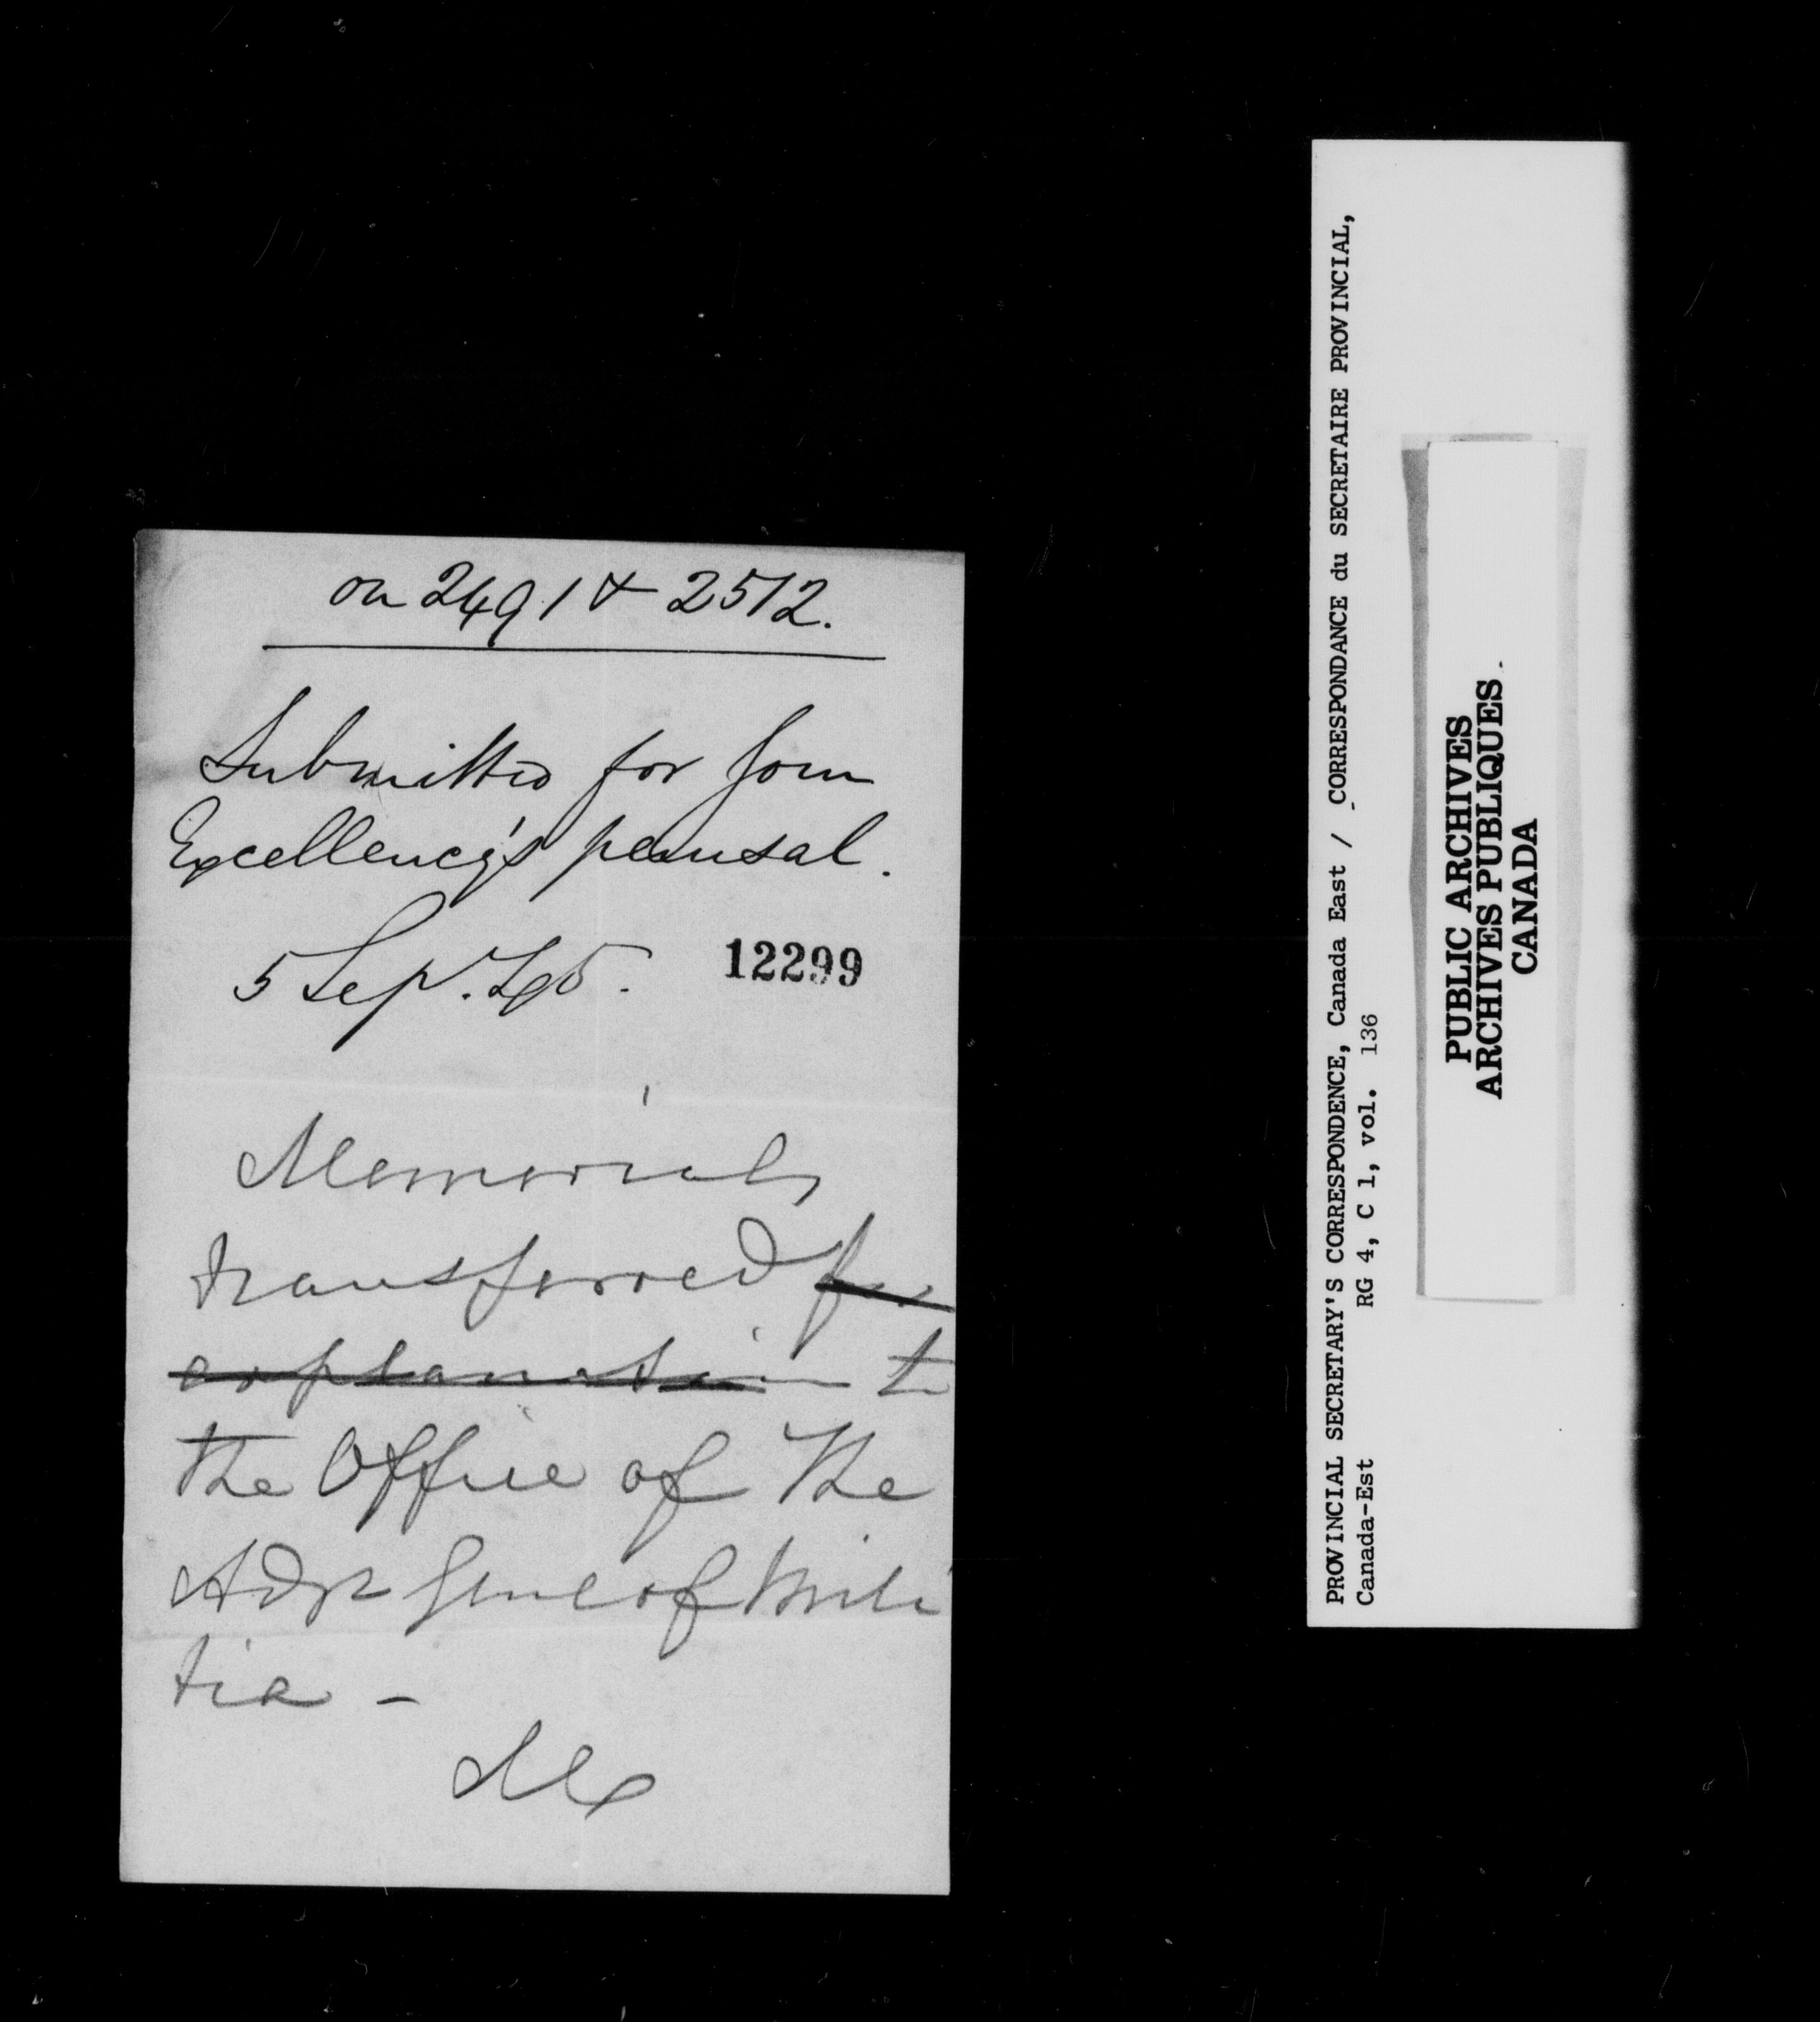 on 2491 & 2512.
Submitted for Your
Excellency's perusal.
5 Sep. 45.
12299
Memorials
transferred for
explanation to
the Office of the
Adjt Genl of Mili
tia -
PROVINCIAL SECRETARY'S CORRESPONDENCE, Canada East / CORRESPONDANCE du SECRETAIRE PROVINCIAL,
Canada-Est RG 4, C 1, vol. 136
PUBLIC ARCHIVES
ARCHIVES PUBLIQUES
CANADA